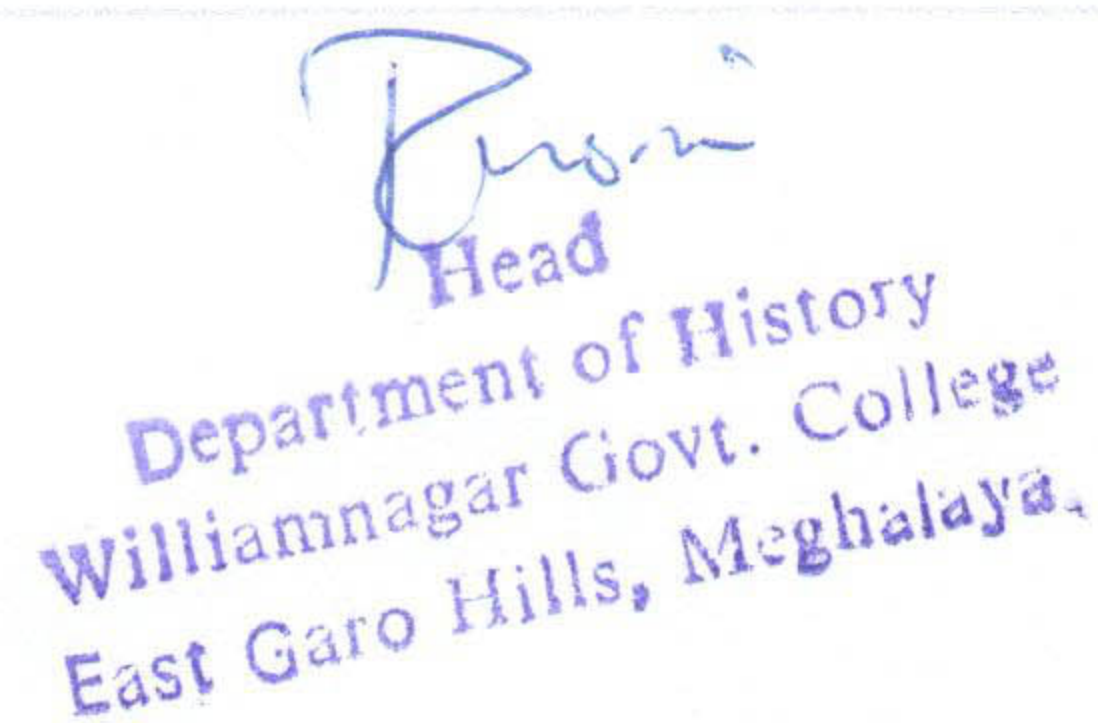 Head
Department of History
Williamnagar Govt. College
East Garo Hills, Meghalaya.